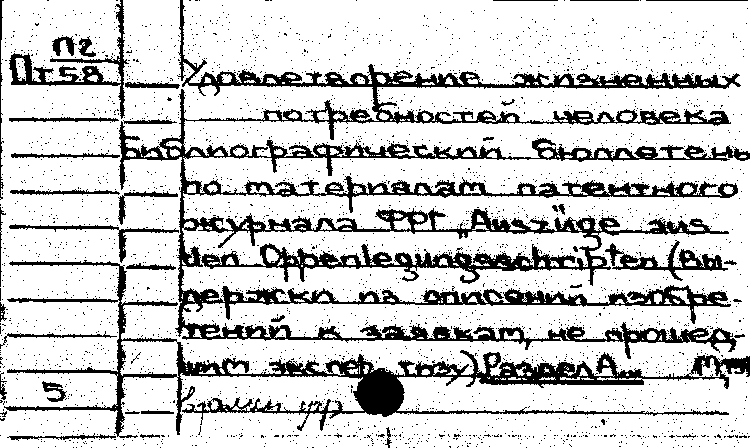 П2
Пт58
Удовлетворение жизненных
потребностей человека
Библиографический бюллетень
по материалам патентного
журнала ФРГ „Auszüge aus
den Offenlegungsschriften (Вы-
держки из описаний изобре-
тений к заявкам, не прошед-
шим экспертизу). Раздел А...
5